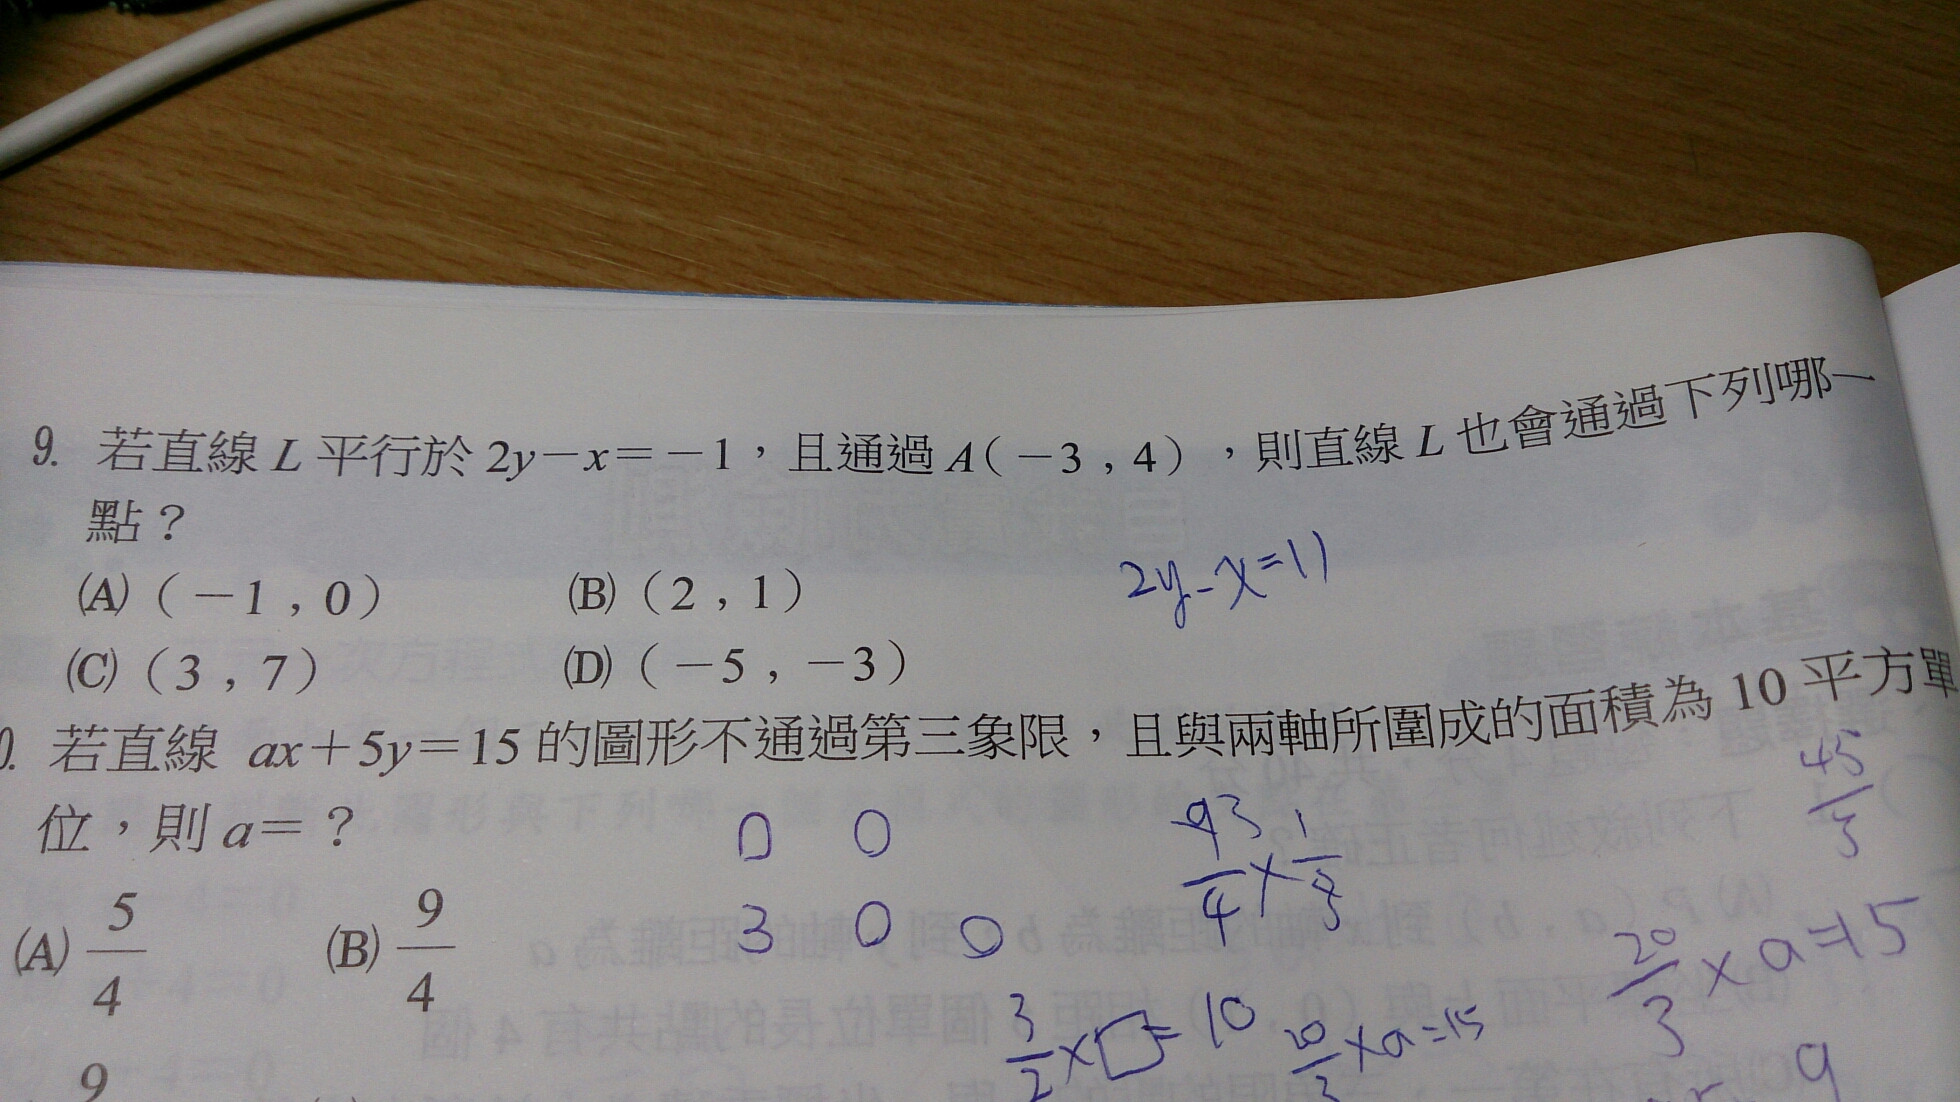 9. 若直線 L 平行於 2y－x＝－1，且通過 A（－3，4），則直線 L 也會通過下列哪一
點？
2y-x=11
(A)（－1，0） (B)（2，1）
(C)（3，7） (D)（－5，－3）
0. 若直線 ax＋5y＝15 的圖形不通過第三象限，且與兩軸所圍成的面積為 10 平方單
位，則 a＝？
0 0
3 0 0
(A) 5/4 (B) 9/4
20/3 × a = 15
3/2 × □ = 10
20/3 × a = 15
9
9